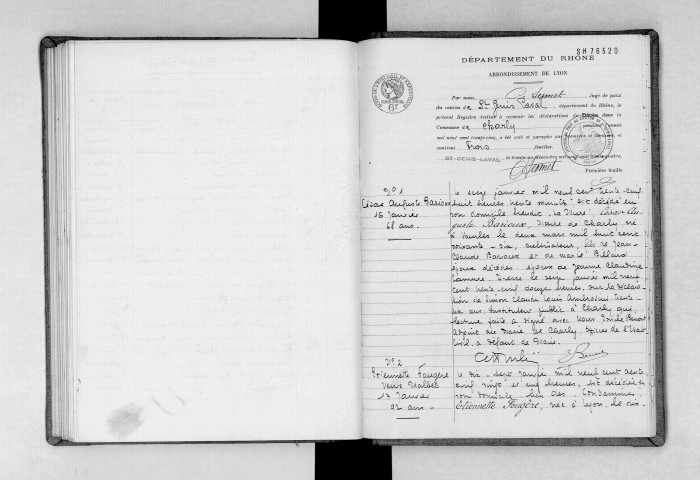 SH 76520
DÉPARTEMENT DU RHÔNE
ARRONDISSEMENT DE LYON
Par nous, Juge de paix
du canton de St Genis Laval, département du Rhône, le
présent Registre destiné à recevoir les déclarations de Décès dans la
Commune de Charly pendant l'année
mil neuf cent trente-cinq, a été coté et paraphé par première et dernière, et
contient Trois feuilles.
ST-GENIS-LAVAL, le trente décembre mil neuf cent trente-quatre.
Première feuille
6F
N° 1
César Auguste Barioux
16 Janvier
68 ans.
Le seize janvier mil neuf cent trente cinq
huit heures trente minutes est décédé en
son domicile lieudit "La Mure", César Au-
guste Barioux, Maire de Charly né
à Vourles le deux mars mil huit cent
soixante-six, cultivateur, fils de Jean-
Claude Barioux et de Marie Billard
époux décédés, époux de Jeanne Claudine
Dressé le seize janvier mil neuf
cent trente cinq douze heures, sur la déclara-
tion de Simon Claude Louis Ambroise, trente
six ans, instituteur public à Charly qui,
lecture faite a signé avec Nous, Benoit
adjoint au Maire de Charly, officier de l'Etat
Civil, à défaut de Maire.
N° 2
Etiennette Fougère
Veuve
17 Janvier
92 ans.
Le dix-sept janvier mil neuf cent trente
cinq vingt et une heures, est décédée en
son domicile lieu des Condamines,
Etiennette Fougère, née à Lyon le dix-